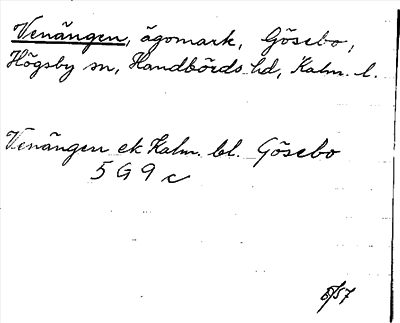 Venängen, ägomark, Gösebo,
Högsby sn, Handbörds hd, Kalm. l.
Venängen ek Kalm. bl. Gösebo
5 G 9 c
8/57